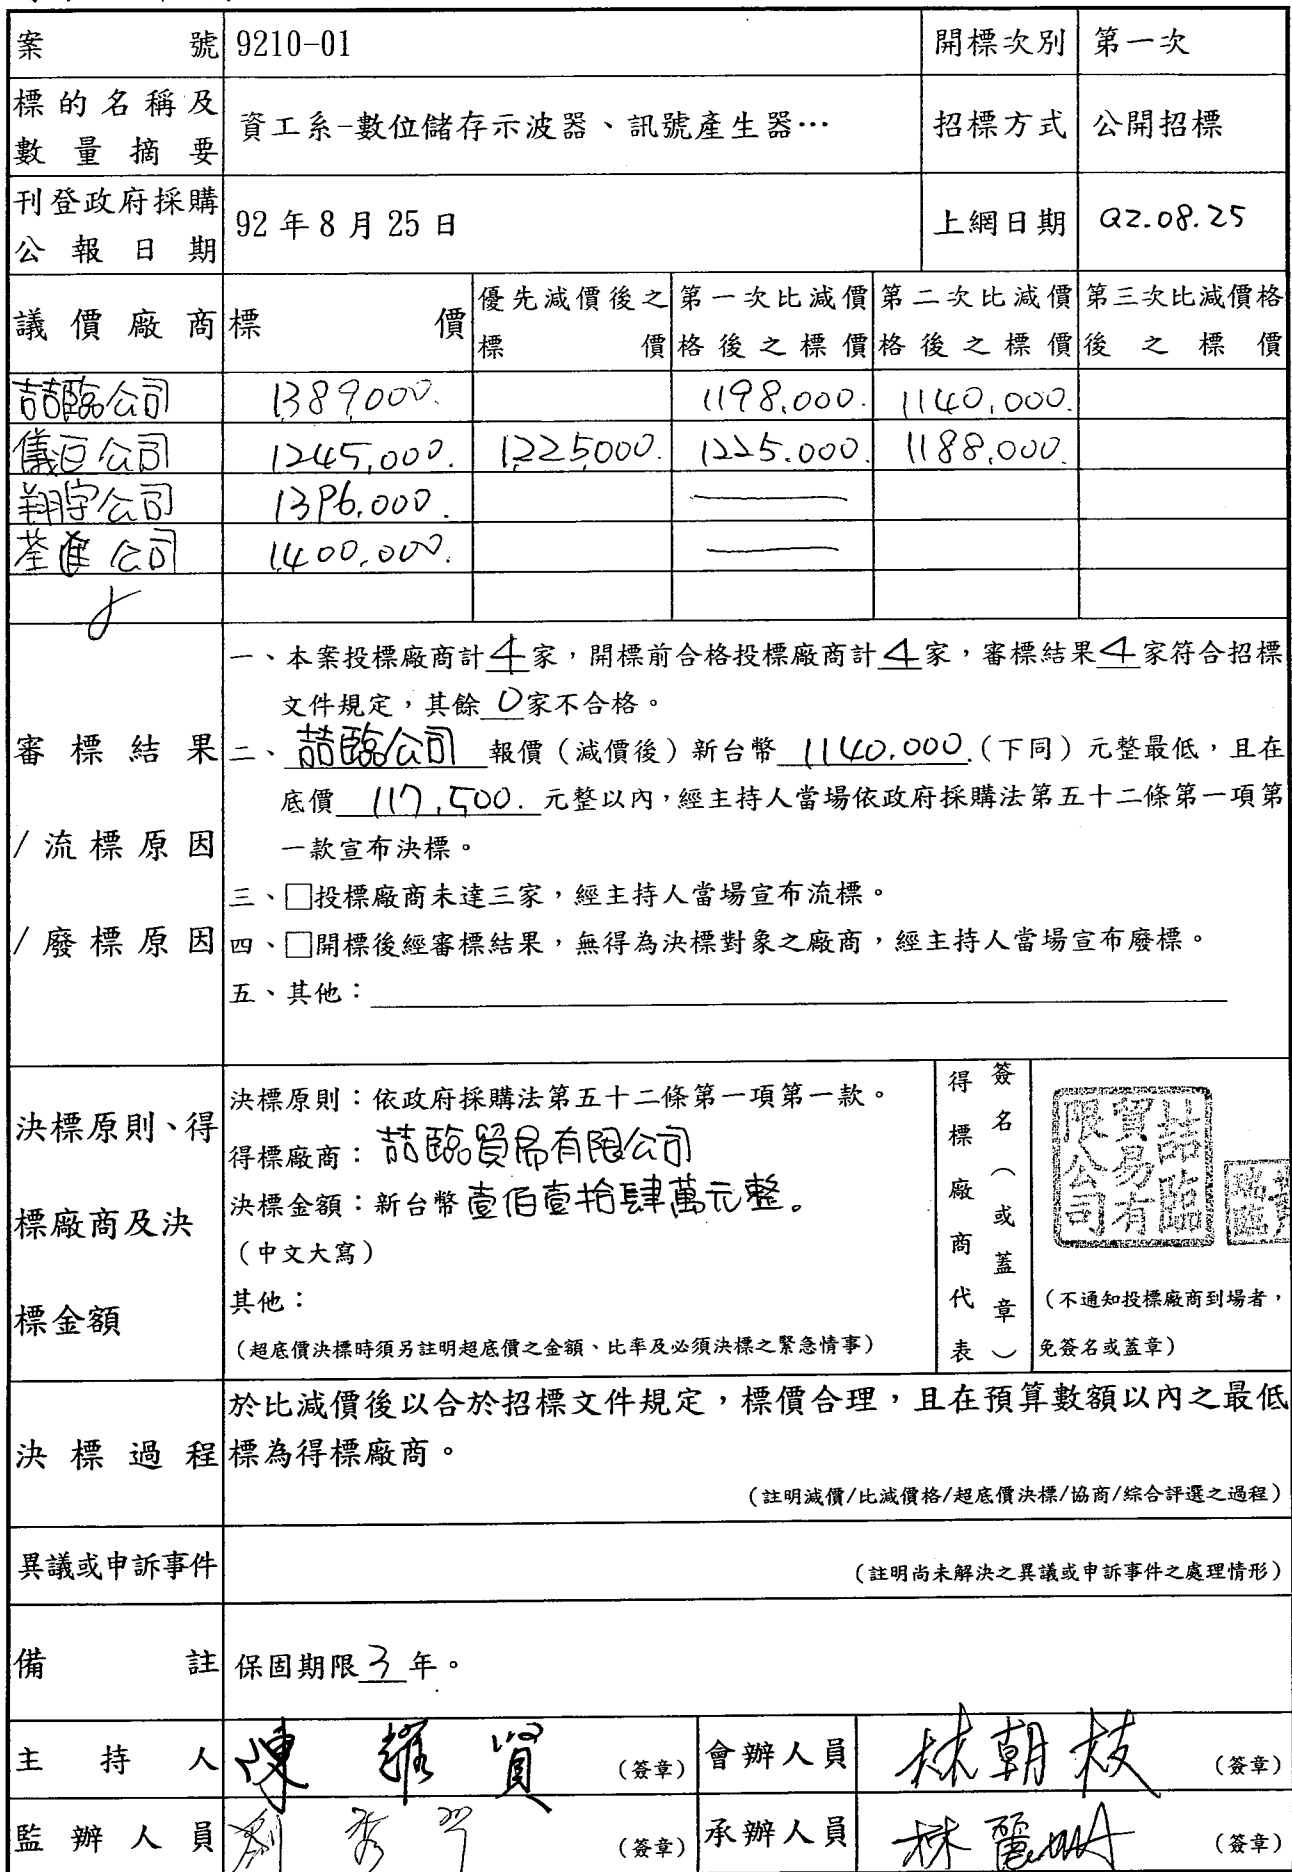 案號 9210-01 開標次別 第一次
標的名稱及
數量摘要
資工系-數位儲存示波器、訊號產生器… 招標方式 公開招標
刊登政府採購
公報日期
92年8月25日 上網日期 92.08.25
議價廠商 標價
優先減價後之
標價
第一次比減價
格後之標價
第二次比減價
格後之標價
第三次比減價格
後之標價
喆臨公司 1389,000. 1198,000. 1140,000.
儀巨公司 1245,000. 1225,000. 1225.000. 1188,000.
翔宇公司 1396,000.
荃進公司 1400,000.
審標結果
/流標原因
/廢標原因
一、本案投標廠商計4家,開標前合格投標廠商計4家,審標結果4家符合招標
文件規定,其餘0家不合格。
二、喆臨公司報價(減價後)新台幣1140,000.(下同)元整最低,且在
底價117,500.元整以內,經主持人當場依政府採購法第五十二條第一項第
一款宣布決標。
三、□投標廠商未達三家,經主持人當場宣布流標。
四、□開標後經審標結果,無得為決標對象之廠商,經主持人當場宣布廢標。
五、其他:
決標原則、得
標廠商及決
標金額
決標原則:依政府採購法第五十二條第一項第一款。
得標廠商:喆臨貿易有限公司
決標金額:新台幣壹佰壹拾肆萬元整。
(中文大寫)
其他:
(超底價決標時須另註明超底價之金額、比率及必須決標之緊急情事)
得標廠商代表
簽名(或蓋章)
喆臨
貿易有
限公司
(不通知投標廠商到場者,
免簽名或蓋章)
決標過程
於比減價後以合於招標文件規定,標價合理,且在預算數額以內之最低
標為得標廠商。
(註明減價/比減價格/超底價決標/協商/綜合評選之過程)
異議或申訴事件
(註明尚未解決之異議或申訴事件之處理情形)
備註 保固期限3年。
主持人 陳耀賢 (簽章) 會辦人員 林朝枝 (簽章)
監辦人員 劉秀 (簽章) 承辦人員 林麗 (簽章)